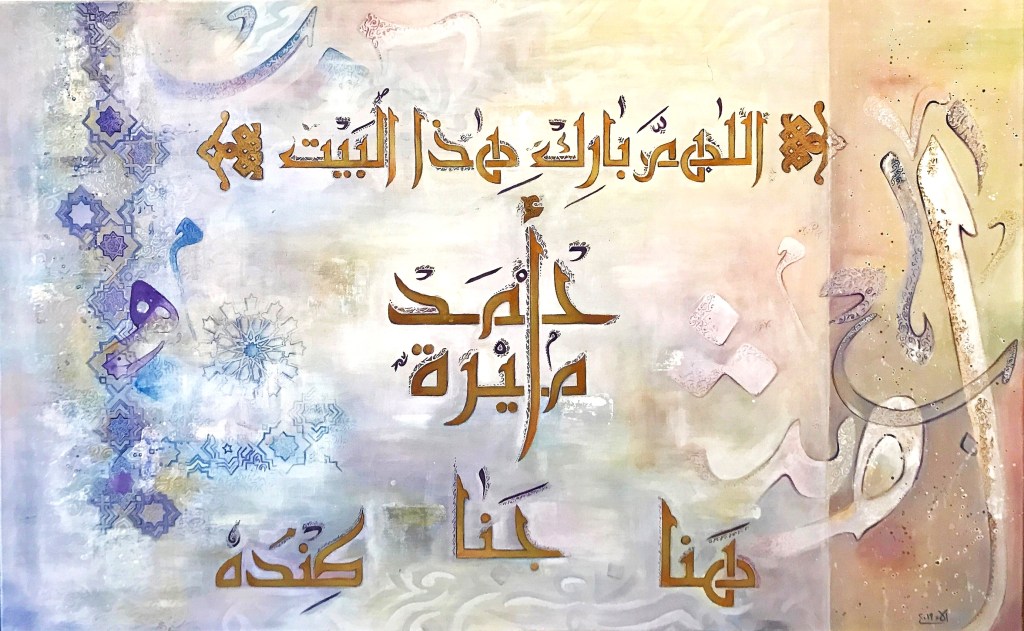 اللّٰهمَّ بٰارِكْ هٰذا الْبَيْتَ
أَحْمَدْ
أميْرة
هَنا جَنٰا كِنْدَهْ